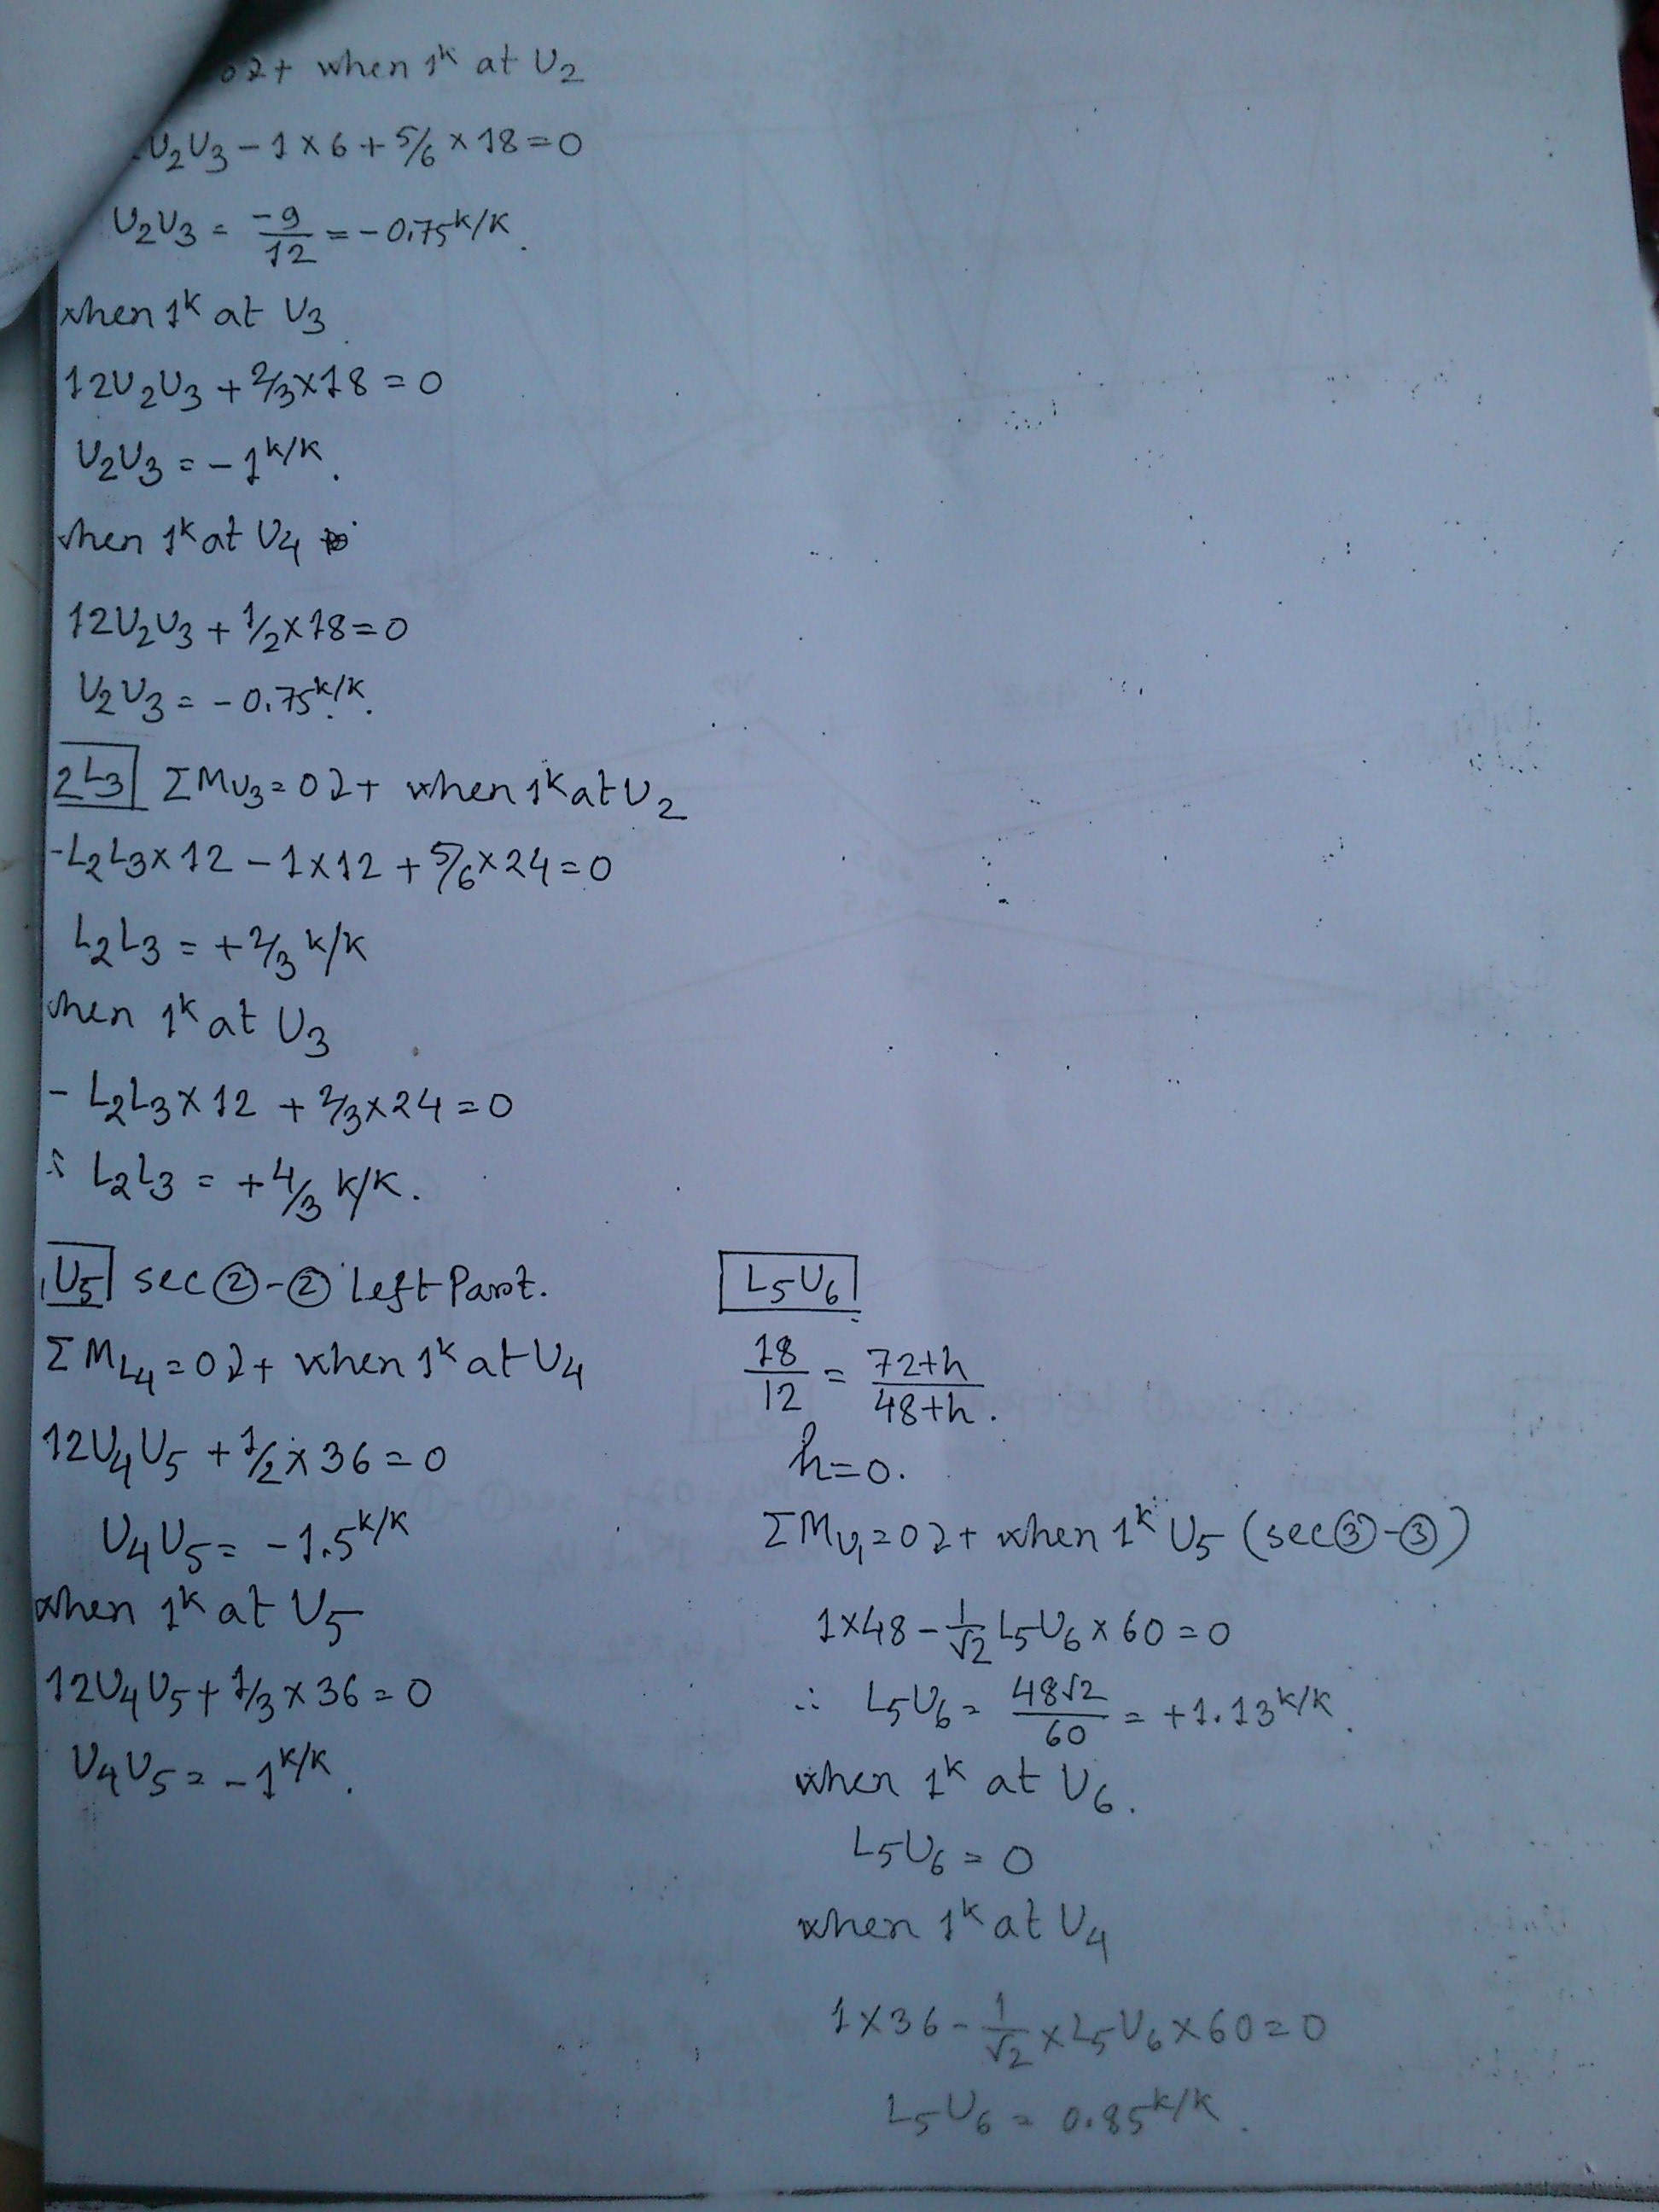 02+ when 1k at U2
U2U3 - 1 × 6 + 5/6 × 18 = 0
U2U3 = -9/12 = -0.75 k/k.
when 1k at U3
12U2U3 + 2/3 × 18 = 0
U2U3 = -1 k/k.
when 1k at U4
12U2U3 + 1/2 × 18 = 0
U2U3 = -0.75 k/k.
2L3 ΣMU3 = 0 2+ when 1k at U2
-L2L3 × 12 - 1 × 12 + 5/6 × 24 = 0
L2L3 = + 2/3 k/k
when 1k at U3
- L2L3 × 12 + 2/3 × 24 = 0
∴ L2L3 = + 4/3 k/k.
U5 sec ②-② left Part.
ΣML4 = 0 2+ when 1k at U4
12U4U5 + 1/2 × 36 = 0
U4U5 = -1.5 k/k
when 1k at U5
12U4U5 + 1/3 × 36 = 0
U4U5 = -1 k/k.
L5U6
18/12 = 72+h/48+h.
h = 0.
ΣMU1 = 0 2+ when 1k U5 (sec ③-③)
1×48 - 1/√2 L5U6 × 60 = 0
∴ L5U6 = 48√2/60 = +1.13 k/k.
when 1k at U6.
L5U6 = 0
when 1k at U4
1×36 - 1/√2 × L5U6 × 60 = 0
L5U6 = 0.85 k/k.